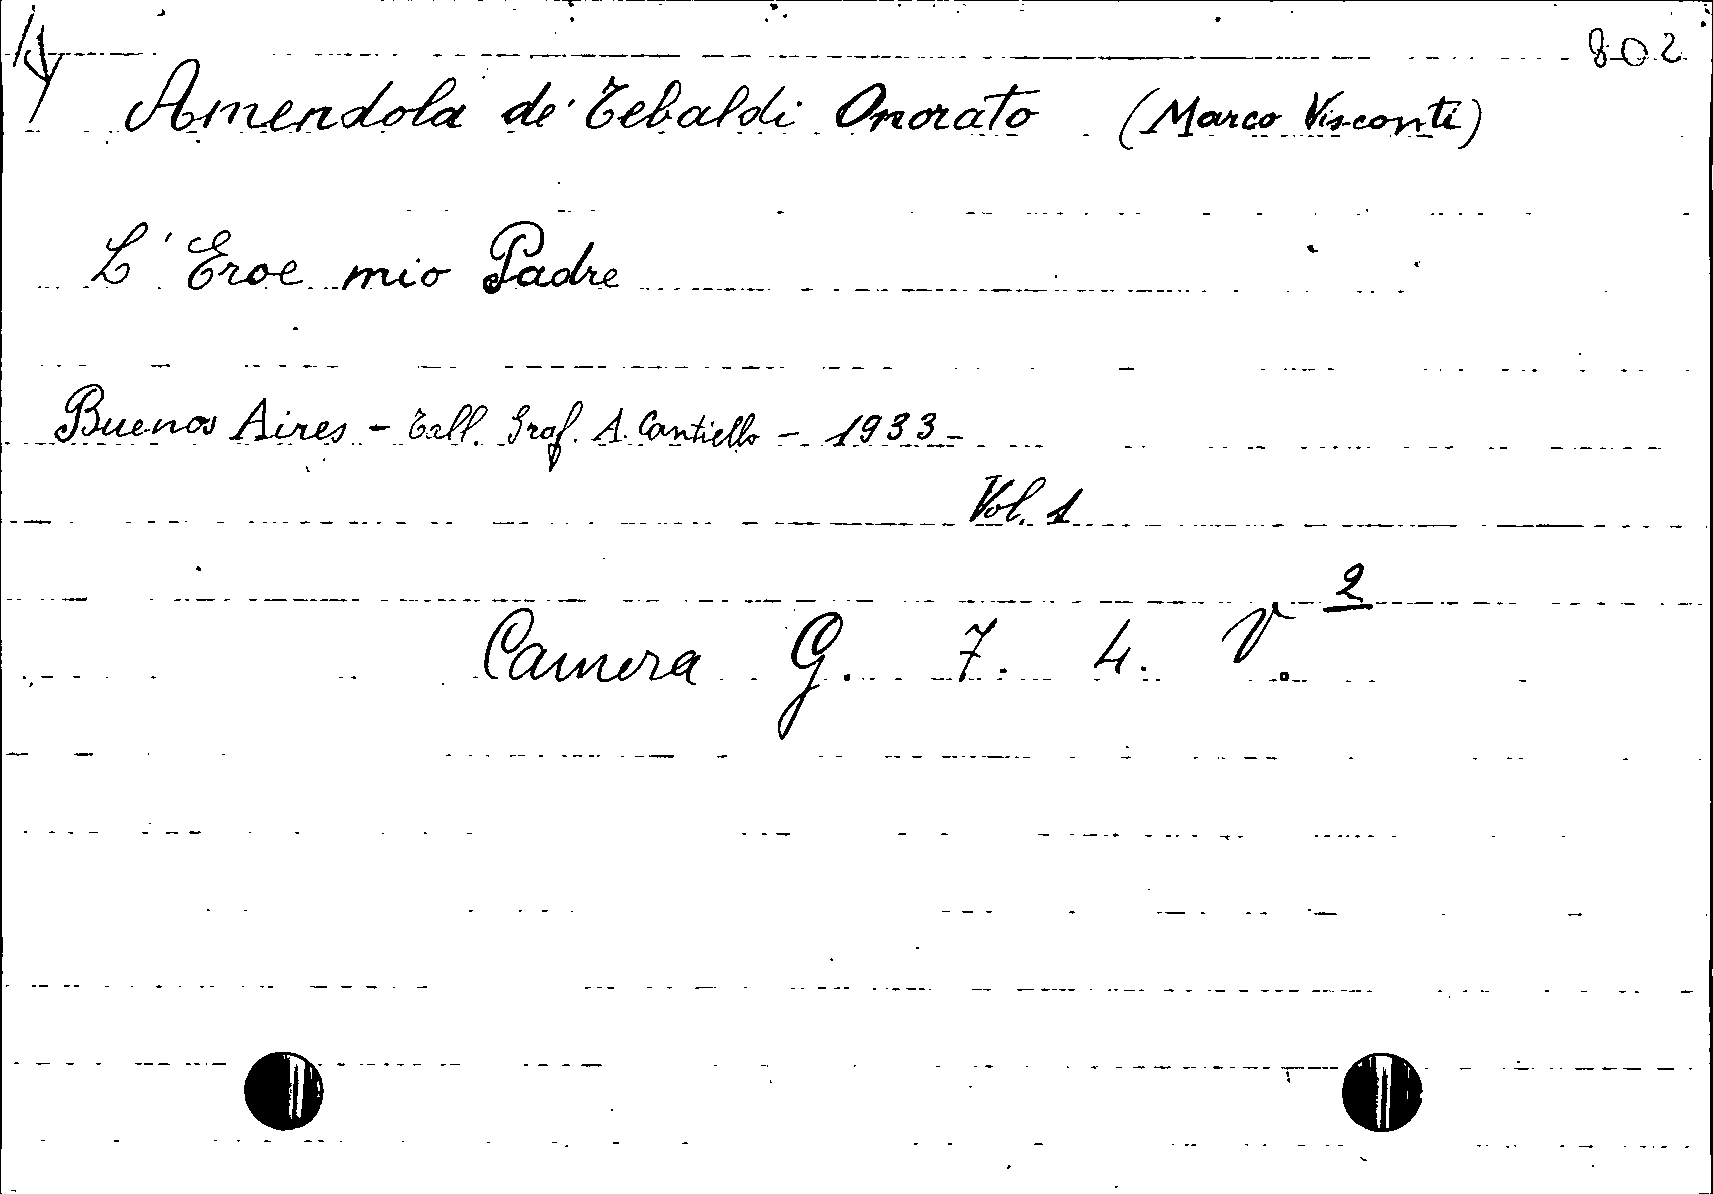 802
Amendola de' Tebaldi Onorato (Marco Visconti)
L'Eroe mio Padre
Buenos Aires - Tall. Graf. A. Cantiello - 1933 -
Vol. 1
2
Camera G. 7. 4. V.